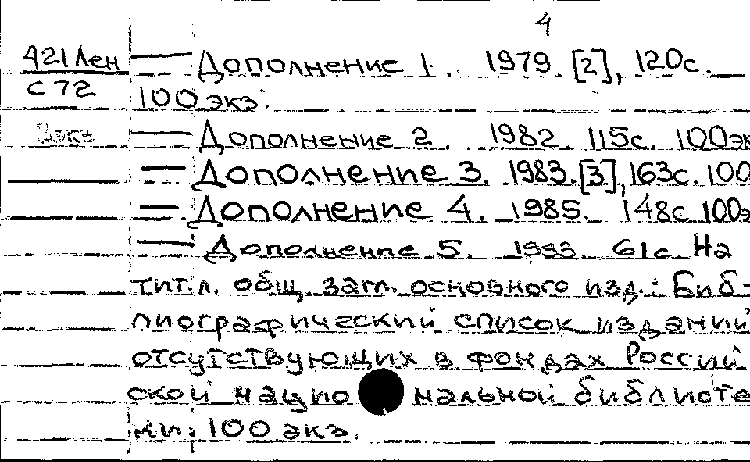 4
421 Лен — Дополнение 1. 1979. [2], 120с.
С 72 100 экз.
— Дополнение 2. 1982. 115с. 100эк
— Дополнение 3. 1983. [3], 163с. 100
— Дополнение 4. 1985. 148с 100э
— Дополнение 5. 1993. 61с На
тит.л. общ. загл. основного изд.: Биб-
лиографический список изданий
отсутствующих в фондах Россий
ской нацио нальной библиоте
ки. 100 экз.